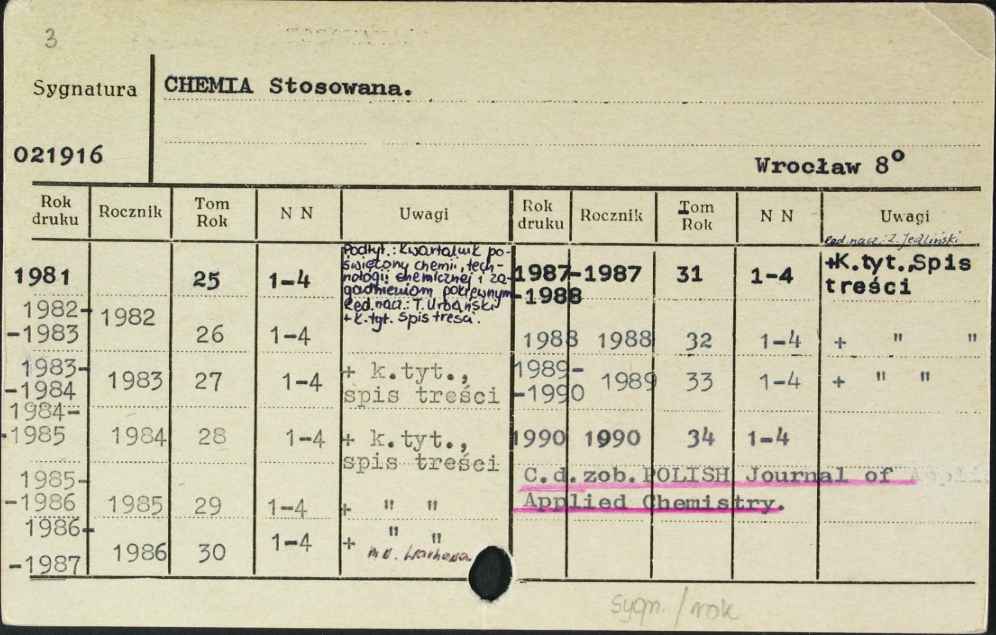 3
Sygnatura CHEMIA Stosowana.
021916 Wrocław 8°
Rok druku Rocznik Tom Rok N N Uwagi Rok druku Rocznik Tom Rok N N Uwagi
Red. nacz.: Z. Jedliński
1981 25 1-4
Podtyt.: Kwartalnik po-
święcony chemii, tech-
nologii chemicznej i za-
gadnieniom pokrewnym
Red. nacz.: T. Urbański
+ k.tyt. spis treści.
1982-
-1983 1982 26 1-4
1983-
-1984 1983 27 1-4 + k.tyt.,
spis treści
1984-
-1985 1984 28 1-4 + k.tyt.,
spis treści
1985-
-1986 1985 29 1-4 + " "
1986-
-1987 1986 30 1-4 + " "
1987-
-1988 1987 31 1-4 +K.tyt.,Spis
treści
1988 1988 32 1-4 + " "
1989-
-1990 1989 33 1-4 + " "
1990 1990 34 1-4
C.d. zob. POLISH Journal of
Applied Chemistry.
sygn./rok